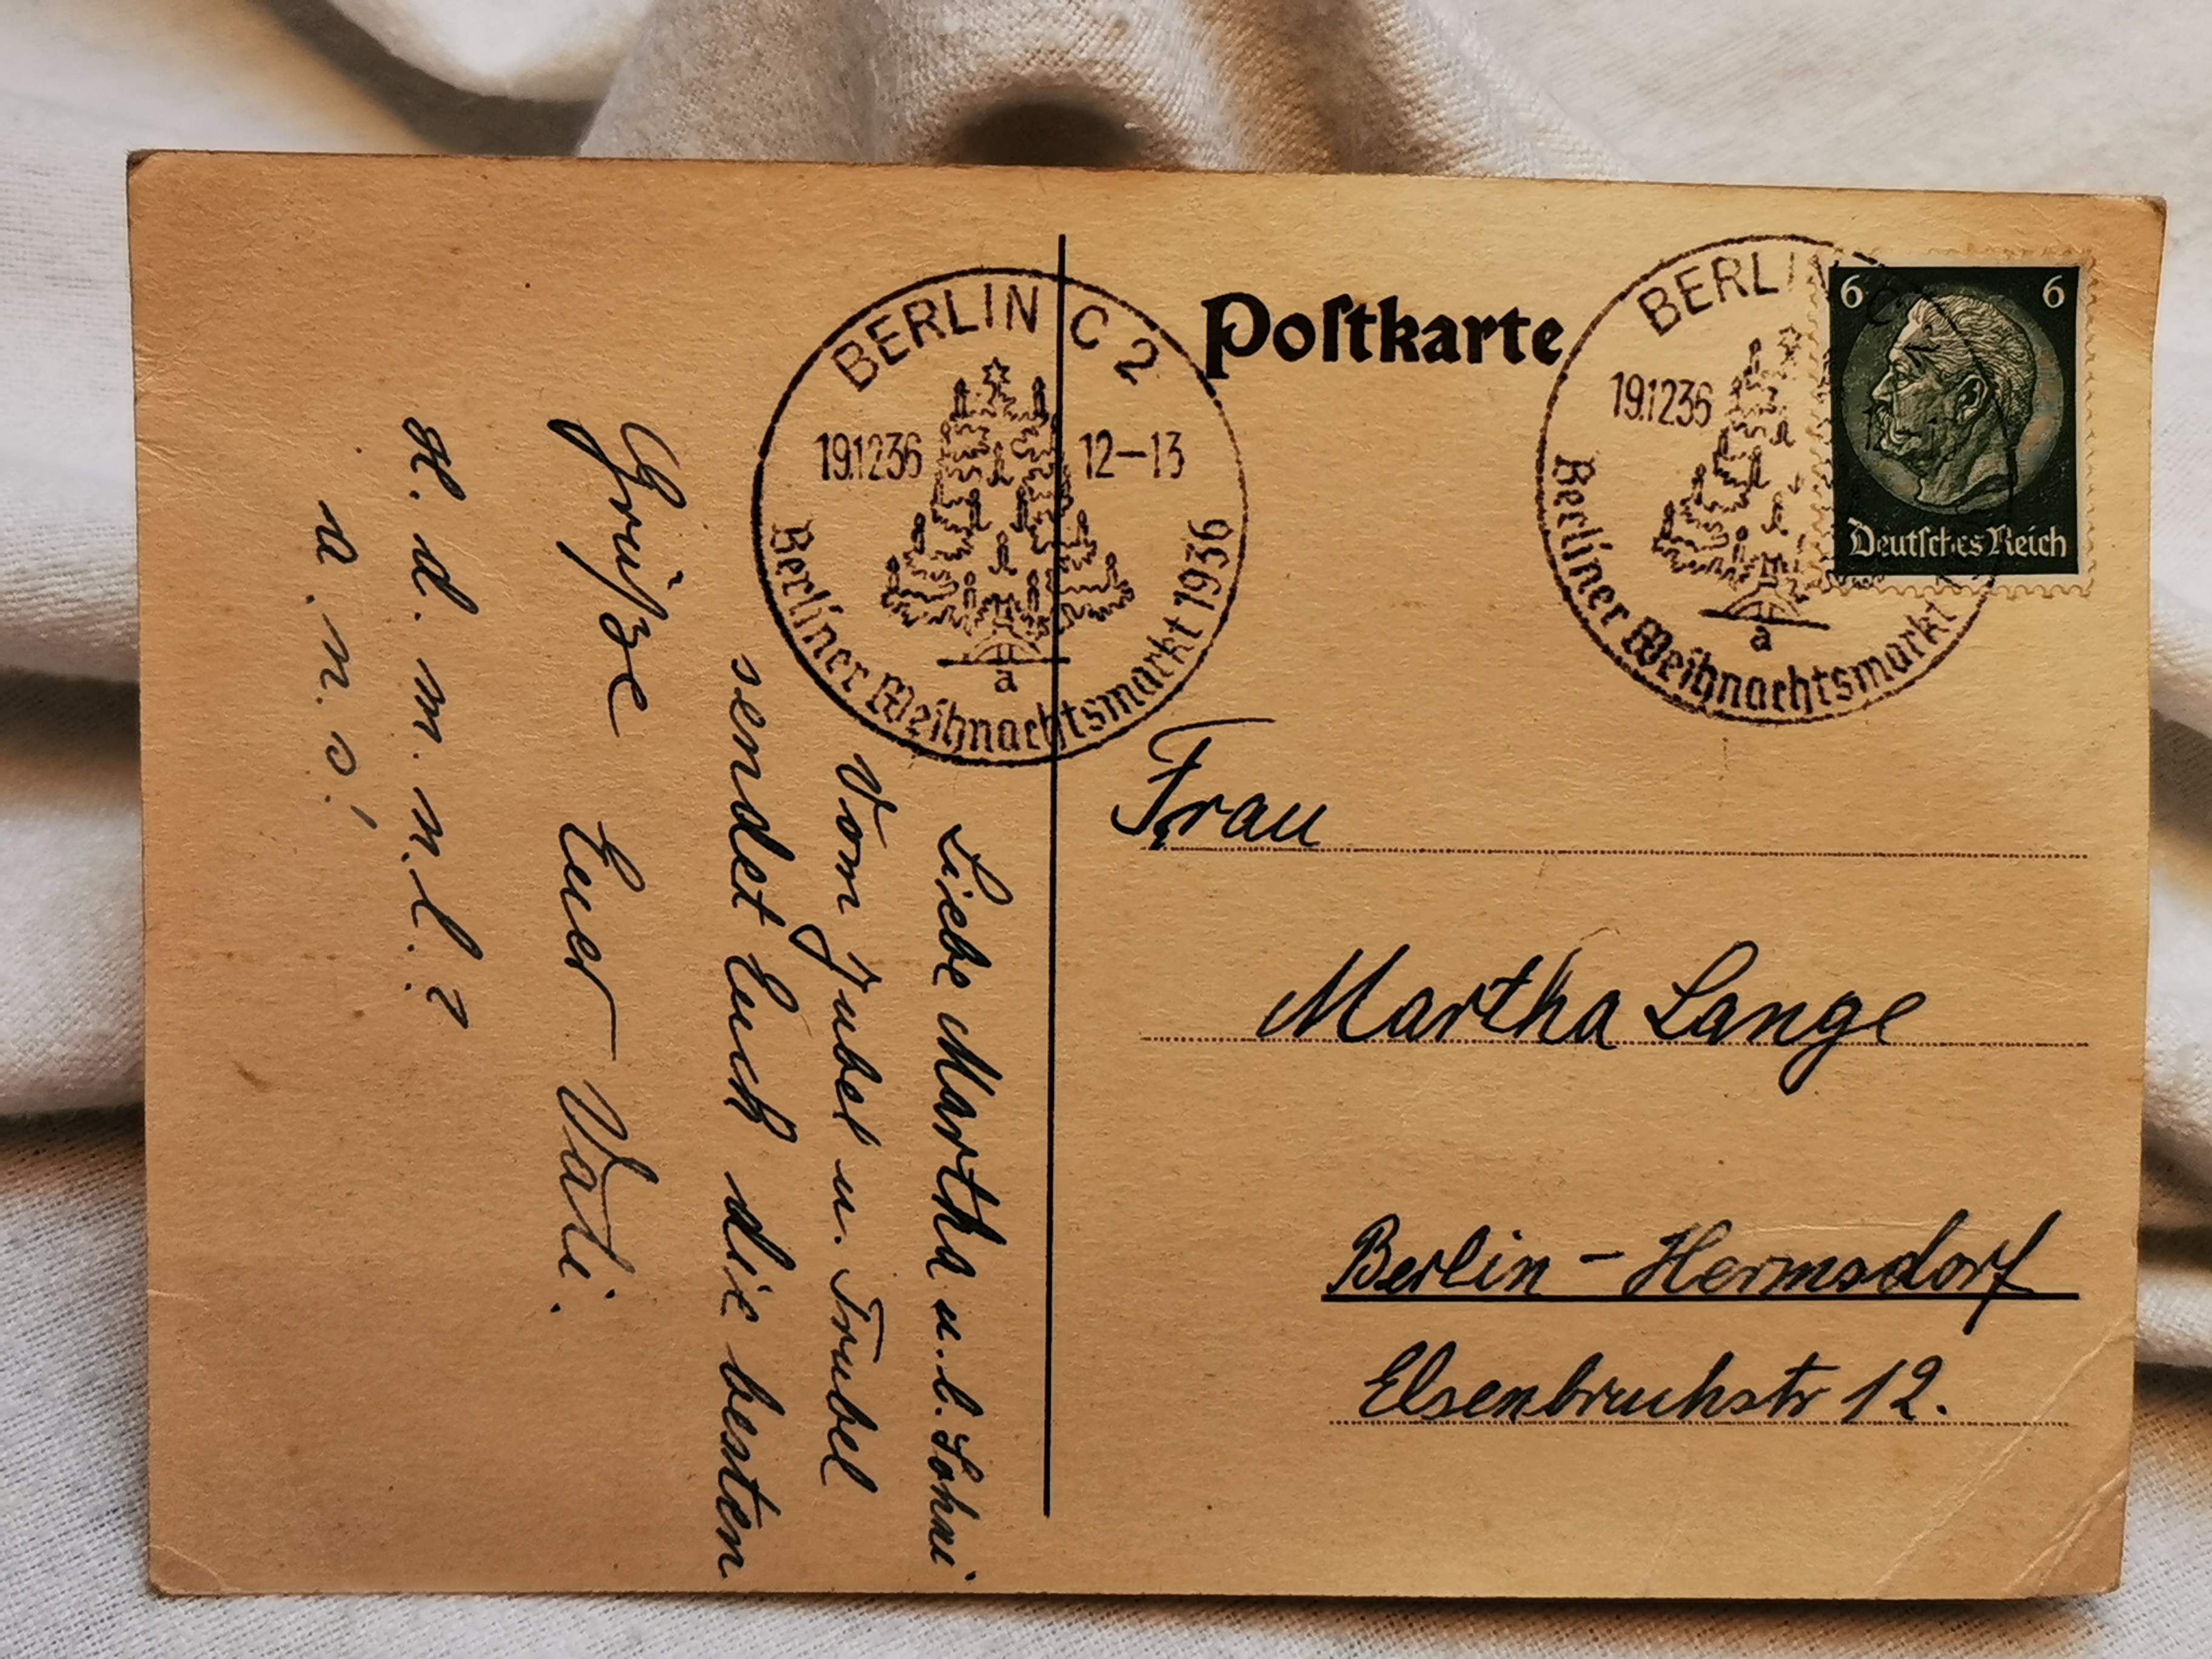 Postkarte
BERLIN C 2
19.12.36 12–13
a
Berliner Weihnachtsmarkt 1936
BERLIN C
19.12.36
a
Berliner Weihnachtsmarkt
6 6
Deutsches Reich
Frau
Martha Lange
Berlin-Hermsdorf
Elsenbruchstr 12.
Liebe Martha u. l.
Vom Jubel u. Trubel
sendet Euch die besten
Grüße Euer Vati.
H. d. m. n. l.?
a. n. s!